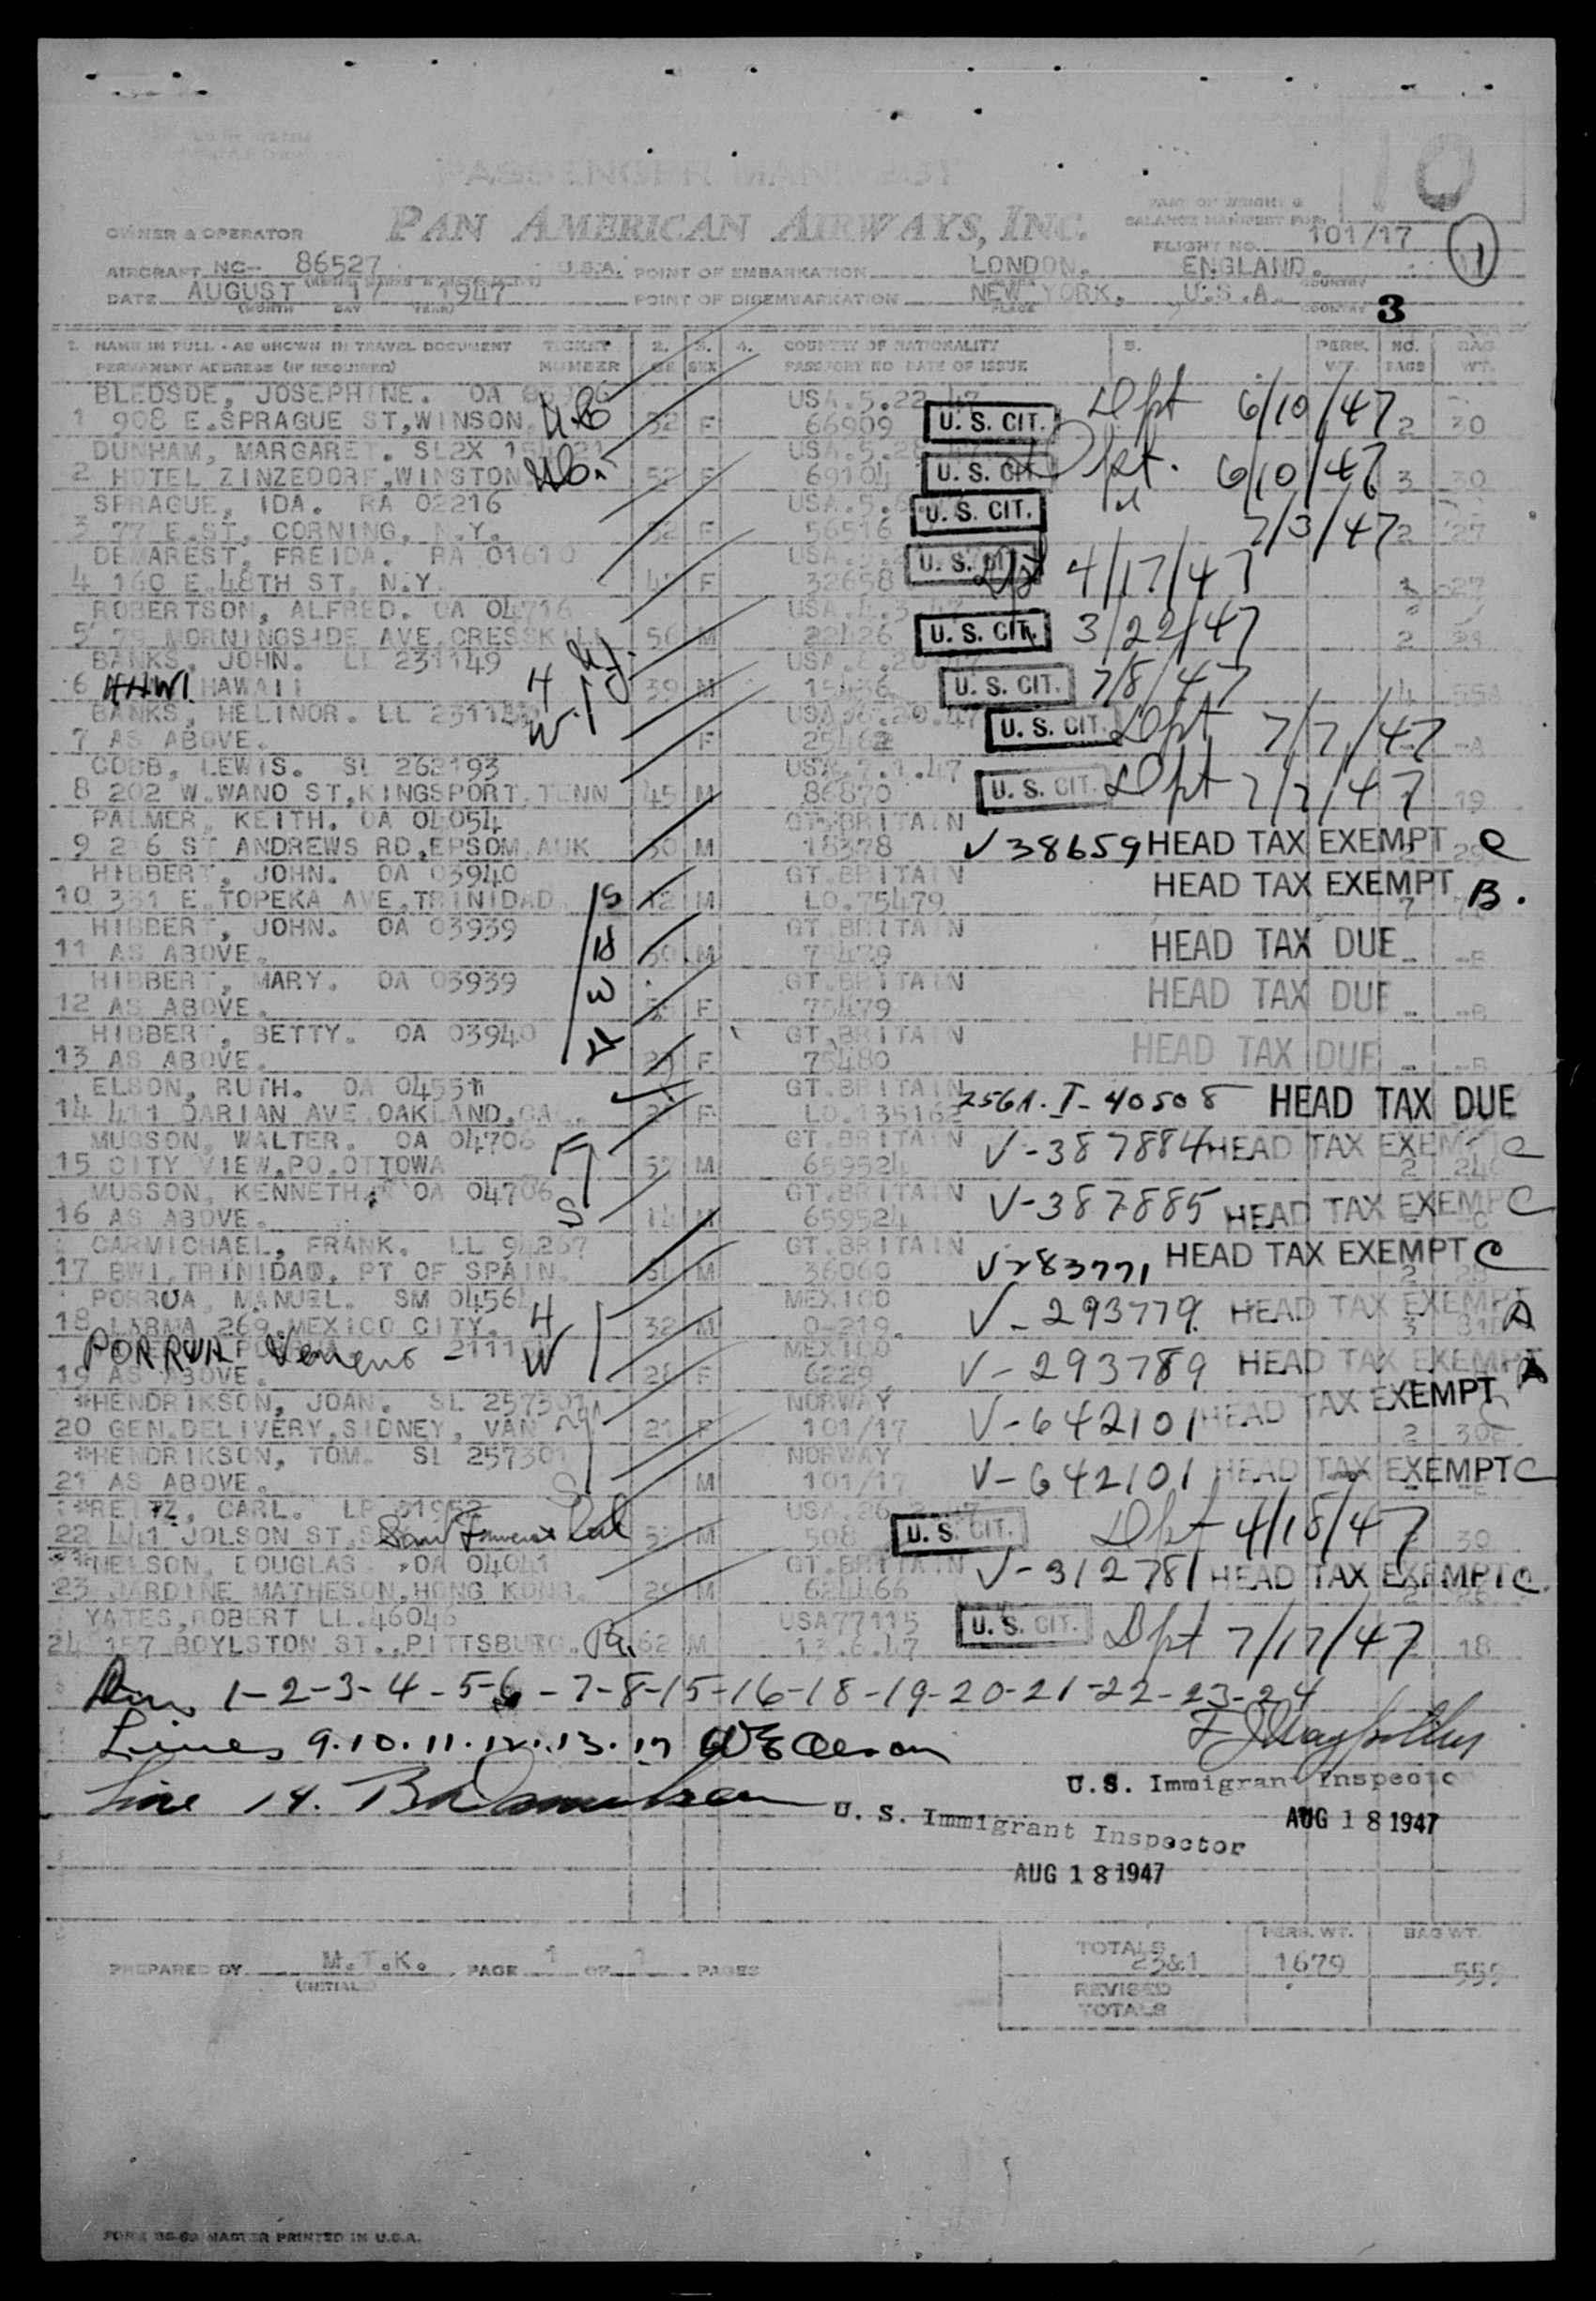 PASSENGER MANIFEST
10
PAN AMERICAN AIRWAYS, INC.
PART OF WEIGHT &
BALANCE MANIFEST FOR
OWNER & OPERATOR
FLIGHT NO. 101/17
1
AIRCRAFT NC- 86527 U.S.A. POINT OF EMBARKATION LONDON, ENGLAND.
COUNTRY
DATE AUGUST 17 1947 POINT OF DISEMBARKATION NEW YORK, U.S.A.
(MONTH DAY YEAR) PLACE COUNTRY 3
1. NAME IN FULL - AS SHOWN IN TRAVEL DOCUMENT TICKET 2. 3. 4. COUNTRY OF NATIONALITY 5. PERS. NO. BAG
PERMANENT ADDRESS (IF REQUIRED) NUMBER AGE SEX PASSPORT NO DATE OF ISSUE WT. BAGS WT.
BLEDSOE, JOSEPHINE. OA USA.5.22.47 Dpt 6/10/47
1 908 E.SPRAGUE ST,WINSON, 32 F 66909 U. S. CIT. 2 30
DUNHAM, MARGARET. SL2X USA.5.28 Dpt. 6/10/47
2 HOTEL ZINZEDORF,WINSTON 52 F 69104 U. S. CIT 3 30
SPRAGUE, IDA. RA 02216 USA.5.6 U. S. CIT.
3 77 E.ST, CORNING, N.Y. 52 F 56516 7/3/47 2 27
DEMAREST, FREIDA. RA 01610 USA. U. S. CIT
4 160 E.48TH ST, N.Y. F 32658 4/17/47 27
ROBERTSON, ALFRED. OA 04716 USA.4.3.47
5 MORNINGSIDE AVE,CRESSKILL 56 M 22426 U. S. CIT. 3/22/47 2
N.J.
BANKS, JOHN. LL 231149 USA.
6 HAWAII H 39 M 15436 U. S. CIT. 7/8/47 4
BANKS, HELINOR. LL W USA. 20.47
7 AS ABOVE. F 25462 U. S. CIT. Dpt 7/7/47 -A
COBB, LEWIS. SL 262193 USA.7.1.47
8 202 W.WANO ST,KINGSPORT,TENN 45 M 86870 U. S. CIT. Dpt 7/2/47 19
PALMER, KEITH. OA 04054 GT.BRITAIN
9 2 6 ST ANDREWS RD,EPSOM,AUK 30 M 18378 V38659 HEAD TAX EXEMPT C
HIBBERT, JOHN. OA 03940 GT.BRITAIN HEAD TAX EXEMPT B.
10 331 E.TOPEKA AVE,TRINIDAD S 12 M LO.75479 7
HIBBERT, JOHN. OA 03939 GT.BRITAIN
11 AS ABOVE. H 50 M 75479 HEAD TAX DUE -B
HIBBERT, MARY. OA 03939 GT.BRITAIN
12 AS ABOVE. W F 75479 HEAD TAX DUE -B
HIBBERT, BETTY. OA 03940 GT.BRITAIN
13 AS ABOVE. F 75480 HEAD TAX DUE -B
ELSON, RUTH. OA GT.BRITAIN
14 411 DARIAN AVE,OAKLAND,CA F LO.135162 256A. I-40508 HEAD TAX DUE
MUSSON, WALTER. OA 04706 GT.BRITAIN
15 CITY VIEW,PO,OTTOWA F M 659524 V-387884 HEAD TAX EXEMPT C 2 24
MUSSON, KENNETH. OA 04706 GT.BRITAIN
16 AS ABOVE. S 14 M 659524 V-387885 HEAD TAX EXEMP C
CARMICHAEL, FRANK. LL 94267 GT.BRITAIN
17 BWI,TRINIDAD, PT OF SPAIN. M 36060 V283771 HEAD TAX EXEMPT C
PORRUA, MANUEL. SM 04564 MEXICO
18 LARMA 269,MEXICO CITY. H 32 M 0-219. V-293779 HEAD TAX EXEMPT A
PORRUA W MEXICO
19 AS ABOVE. 28 F 6229 V-293789 HEAD TAX EXEMPT A
*HENDRIKSON, JOAN. SL 257301 NORWAY
20 GEN.DELIVERY,SIDNEY, VAN 21 F 101/17 V-642101 HEAD TAX EXEMPT C 2
*HENDRIKSON, TOM. SL 257301 NORWAY
21 AS ABOVE. S M 101/17 V-642101 HEAD TAX EXEMPT C
**REITZ, CARL. LP 31952 USA.26
22 441 JOLSON ST,S M 508 U. S. CIT. Dpt 4/18/47 30
**NELSON, DOUGLAS. OA 04041 GT.BRITAIN
23 JARDINE MATHESON,HONG KONG. M 62466 V-312781 HEAD TAX EXEMPT C.
YATES,ROBERT LL.46046 USA77115
24 157 BOYLSTON ST.,PITTSBURG. Pa. 62 M 13.6.47 U. S. CIT. Dpt 7/17/47 18
1-2-3-4-5-6-7-8-15-16-18-19-20-21-22-23-24
Lines 9.10.11.12.13.17
Line 14.
U.S. Immigrant Inspector
U. S. Immigrant Inspector
AUG 18 1947
AUG 18 1947
PERS. WT. BAG WT.
PREPARED BY M.T.K. PAGE 1 OF 1 PAGES
(INITIAL)
TOTALS 23&1 1679 559
REVISED
TOTALS
MASTER PRINTED IN U.S.A.